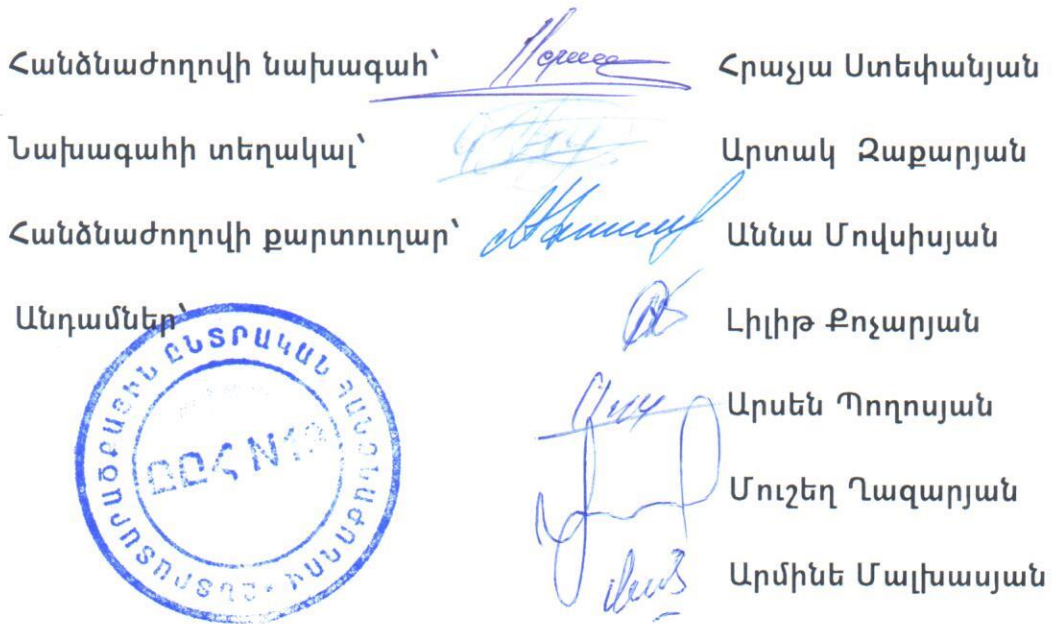 Հանձնաժողովի նախագահ՝ Հրաչյա Ստեփանյան
Նախագահի տեղակալ՝ Արտակ Զաքարյան
Հանձնաժողովի քարտուղար՝ Աննա Մովսիսյան
Անդամներ՝ Լիլիթ Քոչարյան
Արսեն Պողոսյան
Մուշեղ Ղազարյան
Արմինե Մալխասյան
ՏԱՐԱԾՔԱՅԻՆ ԸՆՏՐԱԿԱՆ ՀԱՆՁՆԱԺՈՂՈՎ
ԸԸՀ N